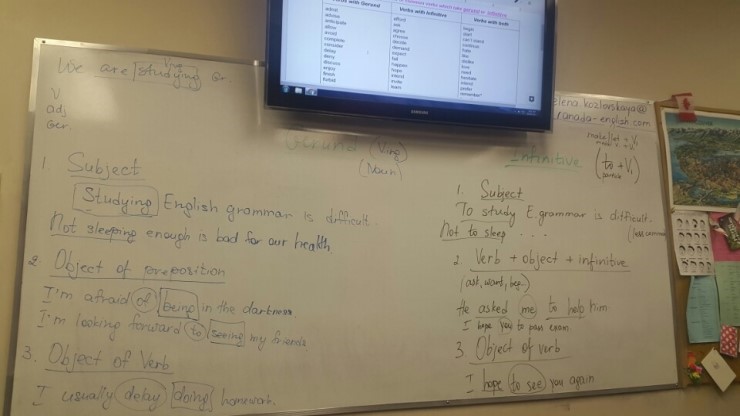 Verbs with Gerund
Verbs with Infinitive
Verbs with both
admit
advise
anticipate
allow
avoid
complete
consider
delay
deny
discuss
enjoy
finish
forbid
afford
ask
agree
choose
decide
demand
expect
fail
happen
hope
intend
invite
learn
begin
start
can't stand
continue
hate
like
dislike
love
need
hesitate
intend
prefer
remember*
SAMSUNG
We are studying Gr.
Ving
V
adj
Ger
Gerund (Ving)
(Noun)
1. Subject
Studying English grammar is difficult.
Not sleeping enough is bad for our health
2. Object of preposition
I'm afraid of being in the darkness.
I'm looking forward to seeing my friends
3. Object of Verb
I usually delay doing homework.
elena.kozlovskaya@
canada-english.com
make/let + V1
Infinitive
(to + V1)
particle
1. Subject
To study E. grammar is difficult.
Not to sleep . . .
2. Verb + object + infinitive
(ask, want, beg..)
He asked me to help him.
I hope you to pass exam.
3. Object of verb
I hope to see you again